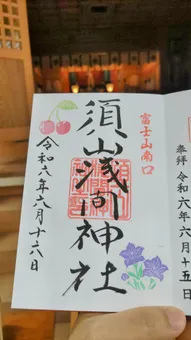 富士山南口
須山浅間神社
令和六年六月十六日
奉拝 令和六年六月十五日